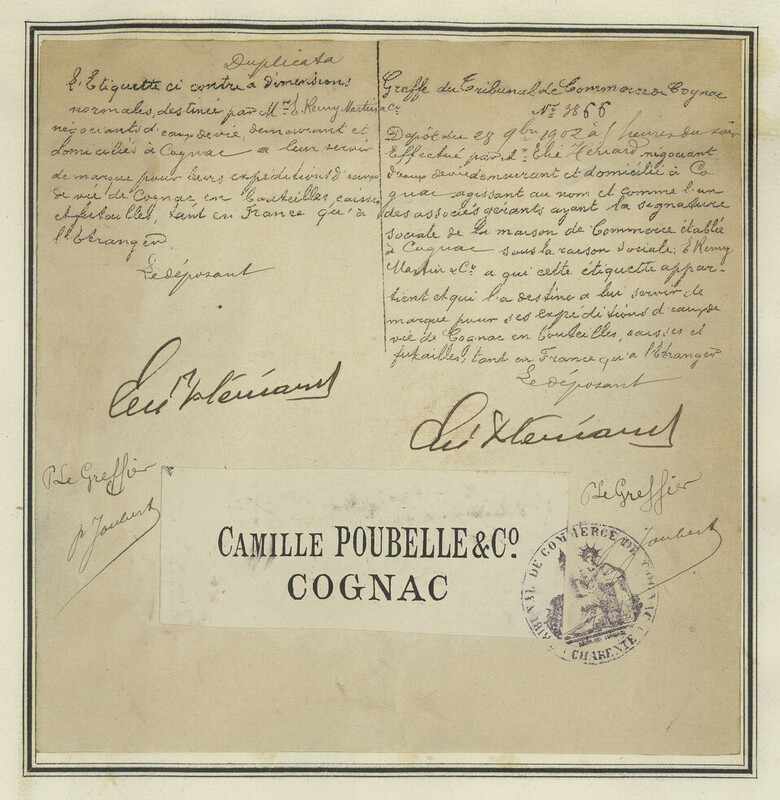 Duplicata
L'Etiquette ci contre a dimensions
normales, destinée par Mrs E. Remy Martin & Co
négociants d'eaux de vie, demeurant et
domiciliés à Cognac a leur servir
de marque pour leurs expéditions d'eaux
de vie de Cognac, en bouteilles, caisses
et futailles, tant en France qu'à
l'Etranger.
Le déposant
P. Le Greffier
p. Joubert
Greffe du Tribunal de Commerce de Cognac
No 3866
Dépôt du 28 9bre 1902 à heures du soir
Effectué par Mr Elie Hériard négociant
d'eaux de vie demeurant et domicilié à Co
gnac agissant au nom et comme l'un
des associés gérants ayant la signature
sociale de la maison de Commerce établie
à Cognac sous la raison sociale: E. Remy
Martin & Co a qui cette étiquette appar-
tient et qui l'a destine a lui servir de
marque pour ses expéditions d'eaux de
vie de Cognac en bouteilles, caisses et
futailles, tant en France qu'a l'Etranger
Le déposant
P. Le Greffier
Joubert
CAMILLE POUBELLE & CO.
COGNAC
TRIBUNAL DE COMMERCE DE COGNAC
CHARENTE